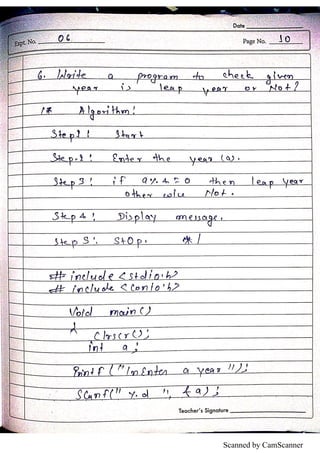 Date
Expt. No. 06
Page No. 10
6. Write a program to check given
year is leap year or Not?
/* Algorithm:
Step 1: Start
Step-2: Enter the year (a).
Step 3: if a%4=0 then leap year
other wise Not.
Step 4: Display message.
Step 5: Stop. */
# include <stdio.h>
# include <conio.h>
Void main()
{
Clrscr();
int a;
Printf ("\n Enter a year");
Scanf("%d", &a);
Teacher's Signature
Scanned by CamScanner